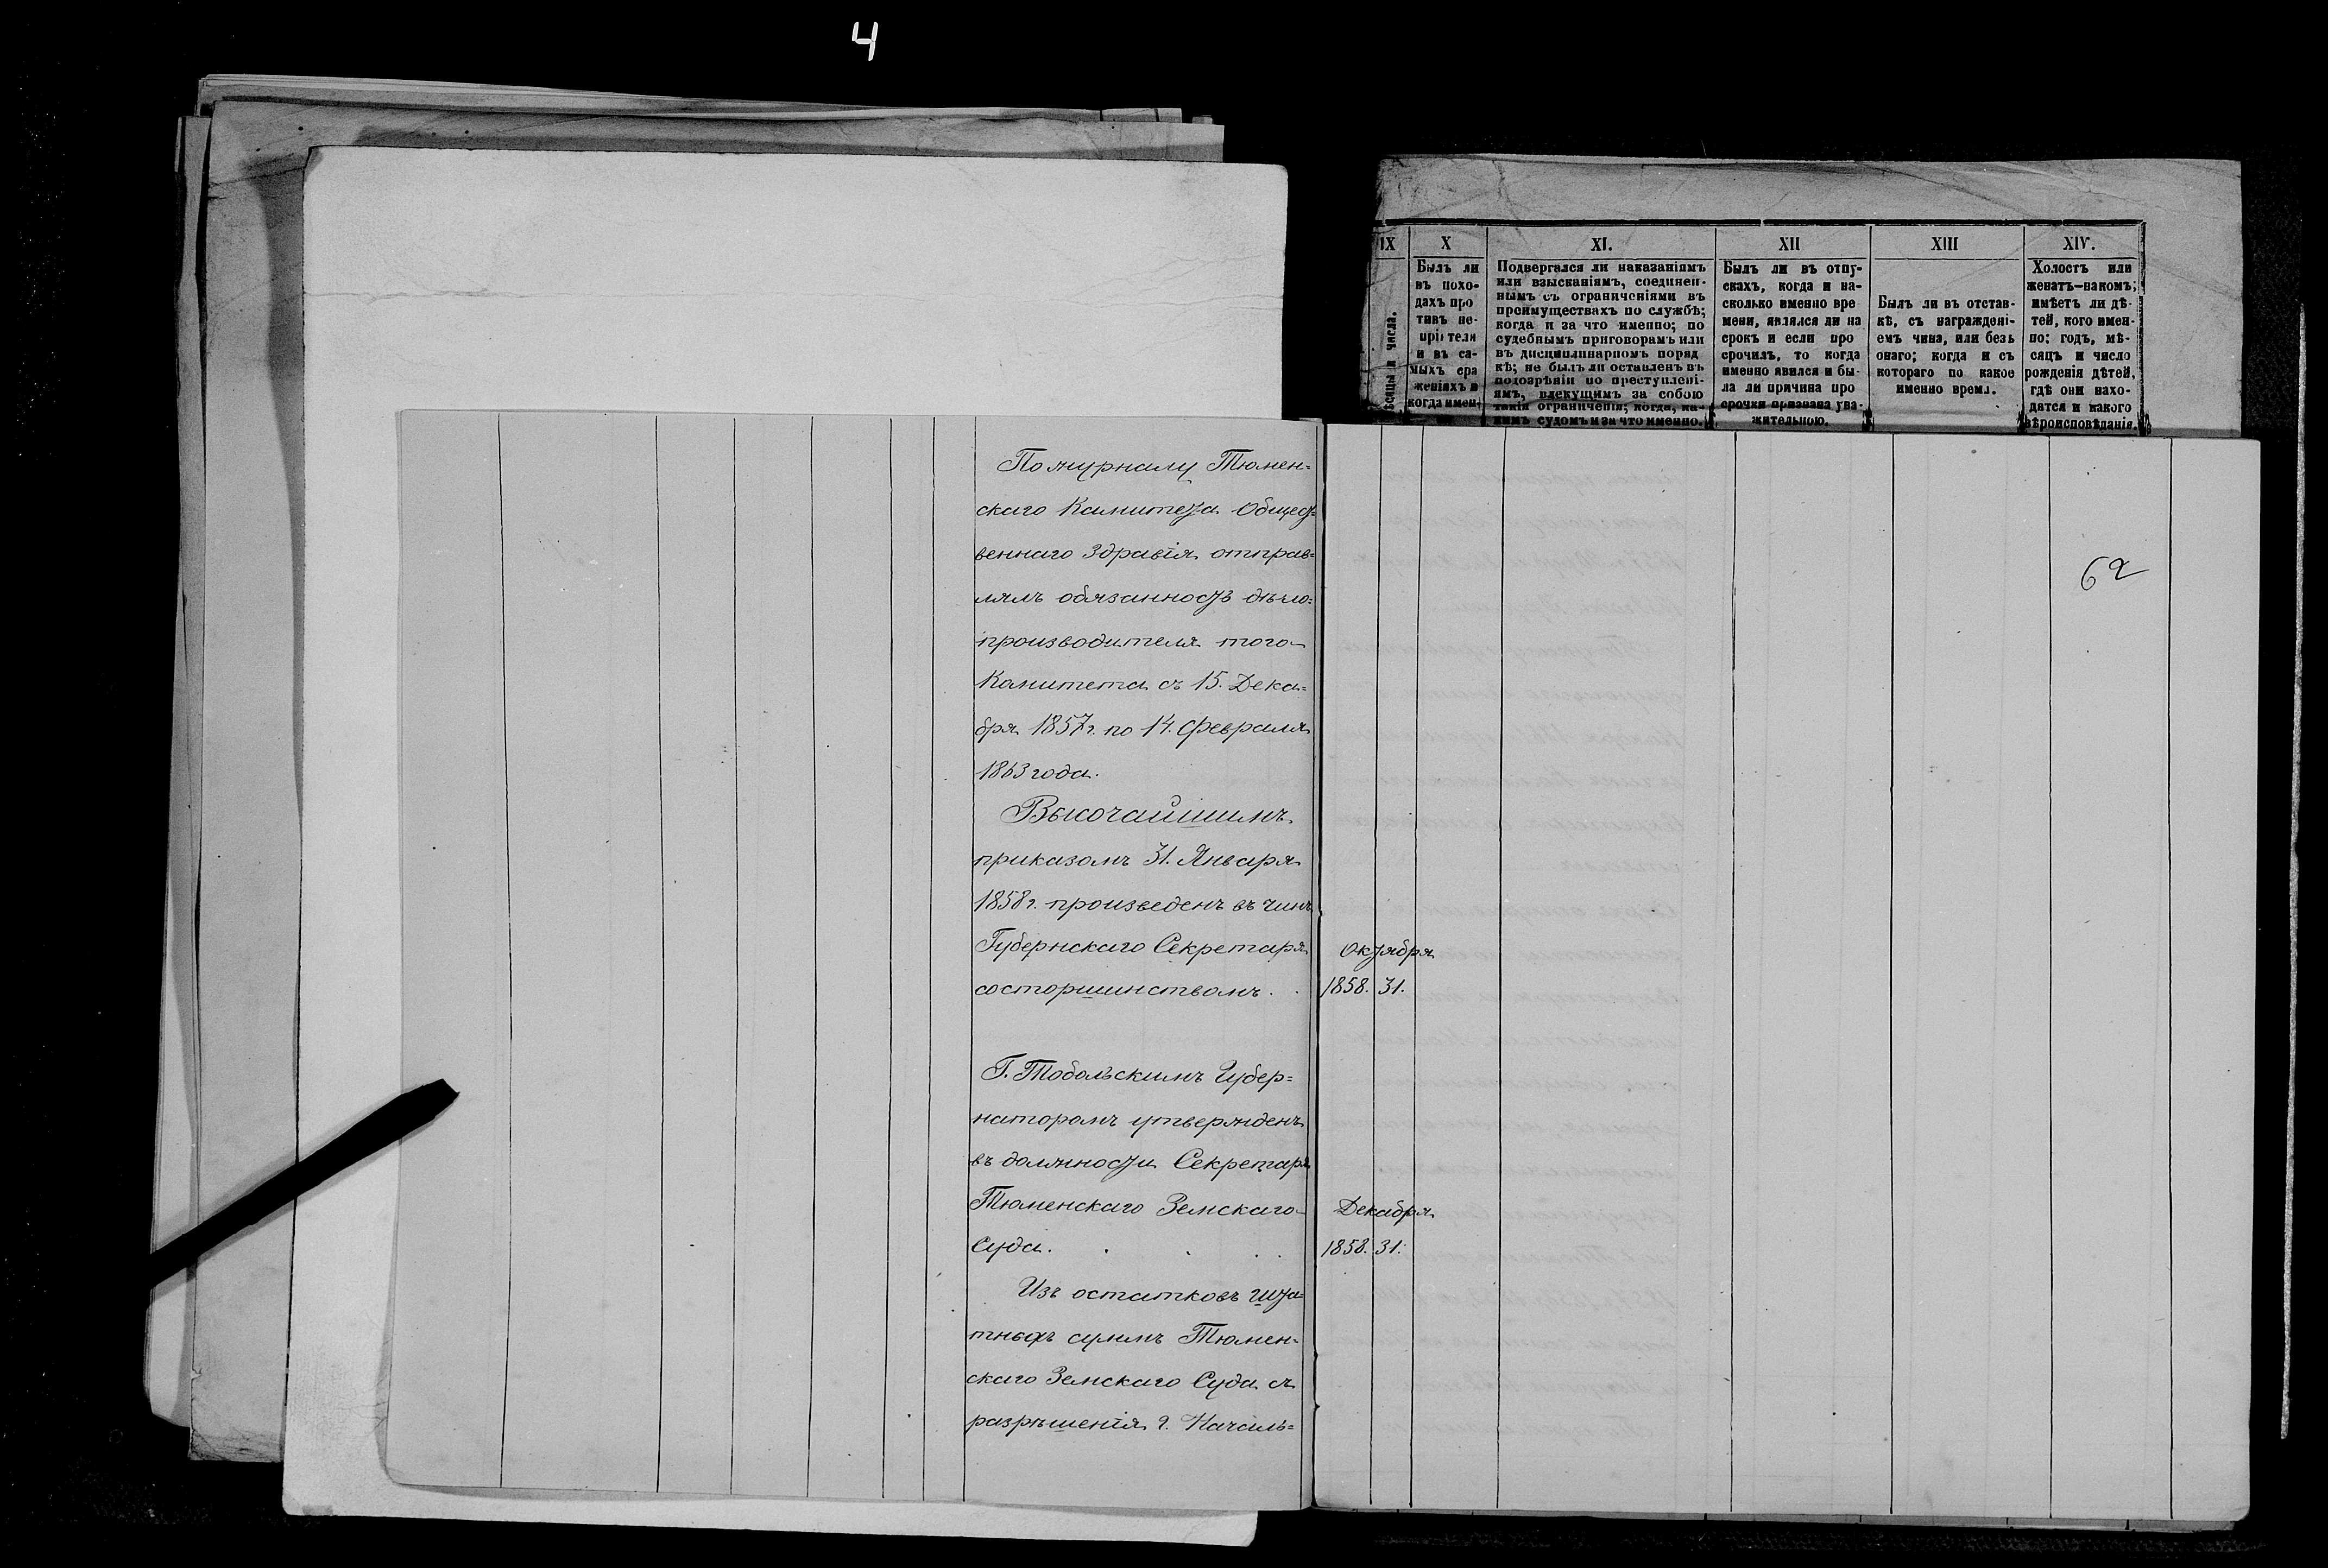 4
IX
ѣсяцы и числа.
X
Былъ ли
въ похо-
дахъ про
тивъ не-
пріятеля
и въ са-
мыхъ сра
женіяхъ и
когда имен-
XI.
Подвергался ли наказаніямъ
или взысканіямъ, соединен-
нымъ съ ограниченіями въ
преимуществахъ по службѣ;
когда и за что именно; по
судебнымъ приговорамъ или
въ дисциплинарномъ поряд
кѣ; не былъ ли оставленъ въ
подозрѣніи по преступлені-
ямъ, влекущимъ за собою
такія ограниченія; когда, ка-
кимъ судомъ и за что именно.
XII
Былъ ли въ отпу-
скахъ, когда и на-
сколько именно вре
мени, являлся ли на
срокъ и если про
срочилъ, то когда
именно явился и бы-
ла ли причина про
срочки признана ува-
жительною.
XIII
Былъ ли въ отстав-
кѣ, съ награжденi-
емъ чина, или безъ
онаго; когда и съ
котораго по какое
именно время.
XIV.
Холостъ или
женатъ—накомъ;
имѣетъ ли дѣ-
тей, кого имен-
но; годъ, мѣ-
сяцъ и число
рожденія дѣтей,
гдѣ они нахо-
дятся и какого
вѣроисповѣданія.
По журналу Тюмен=
скаго Комитета Общест=
веннаго Здравія отправ=
лялъ обязанность дѣло=
производителя того
Комитета съ 15. Дека=
бря 1857 г. по 14. Февраля
1863 года.
Высочайшимъ
приказомъ 31. Января
1858 г. произведенъ въ чинъ
Губернскаго Секретаря
со сторшинствомъ . .
Октября
1858. 31.
Г. Тобольскимъ Губер=
наторомъ утвержденъ
въ должности Секретаря
Тюменскаго Земскаго
Суда. . . . .
Декабря
1858. 31.
Изъ остатковъ шта=
тныхъ суммъ Тюмен=
скаго Земскаго Суда съ
разрѣшенія г. Началь=
62